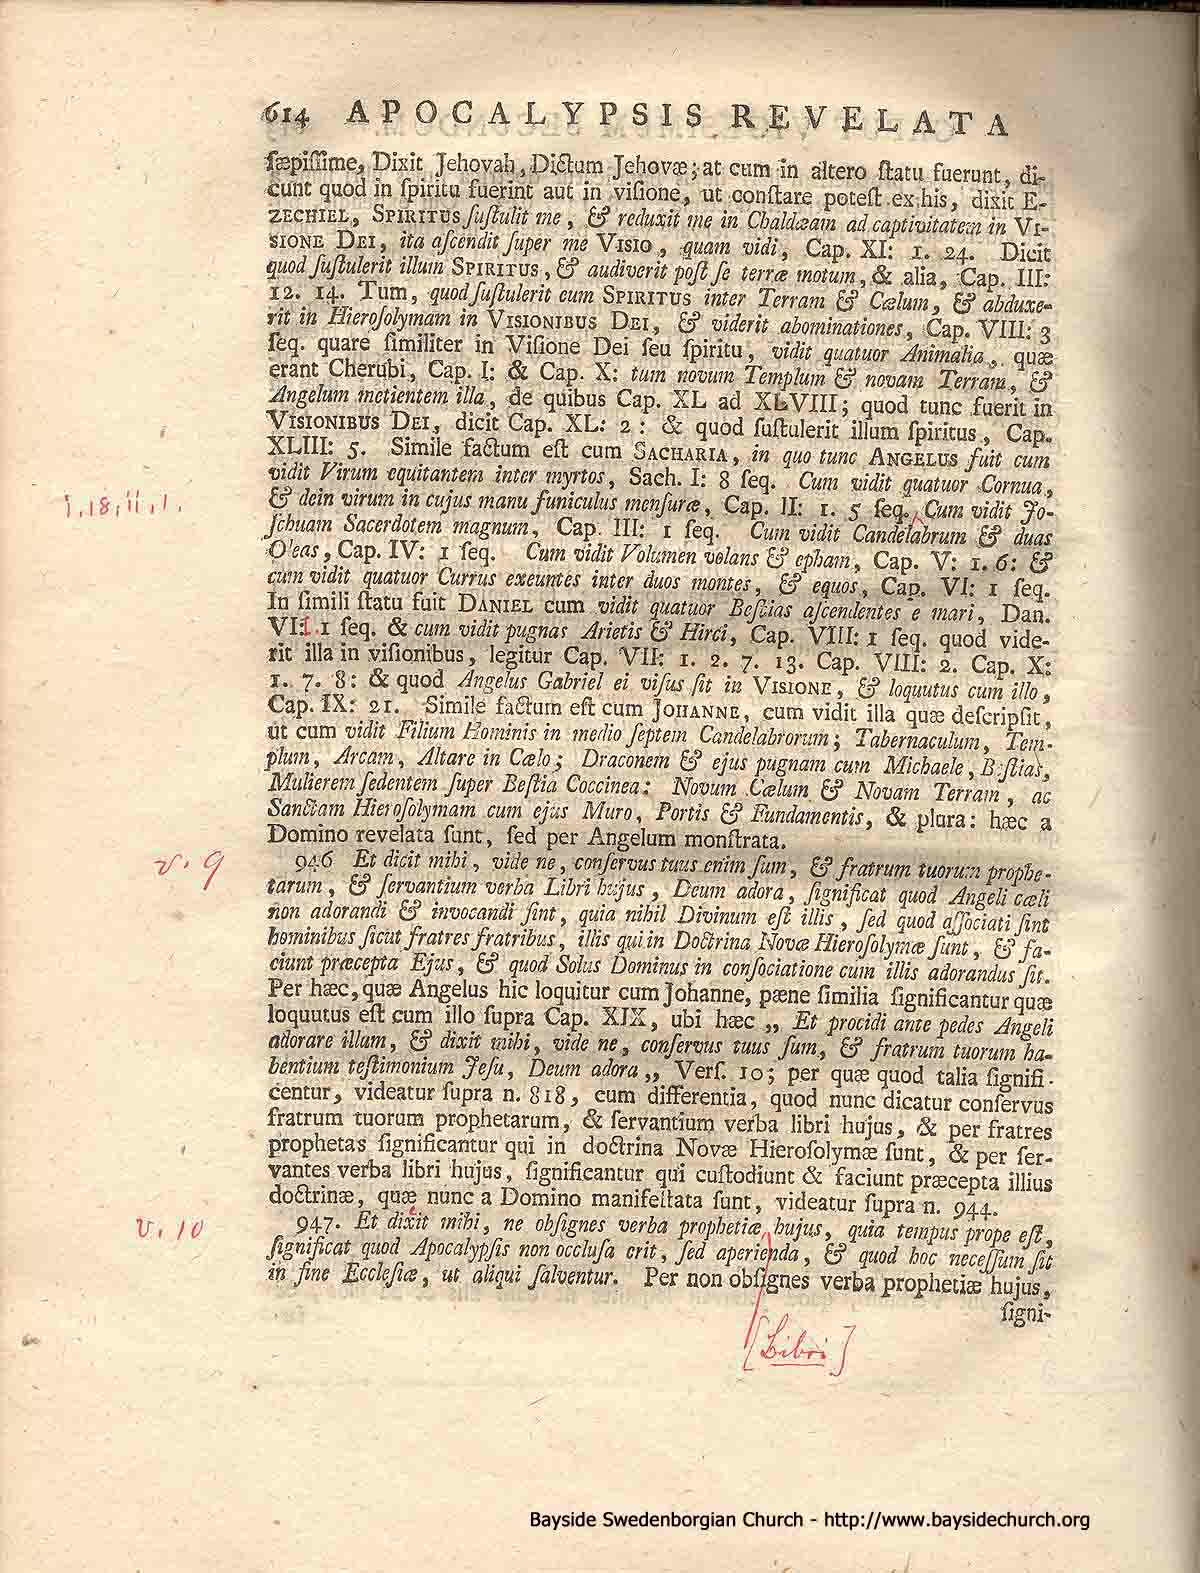 614 APOCALYPSIS REVELATA
ſæpiſſime, Dixit Jehovah, Dictum Jehovæ; at cum in altero ſtatu fuerunt, di-
cunt quod in ſpiritu fuerint aut in viſione, ut conſtare poteſt ex his, dixit E-
ZECHIEL, SPIRITUS ſuſtulit me, & reduxit me in Chaldæam ad captivitatem in VI-
SIONE DEI, ita aſcendit ſuper me VISIO, quam vidi, Cap. XI: 1. 24. Dicit
quod ſuſtulerit illum SPIRITUS, & audiverit poſt ſe terræ motum, & alia, Cap. III:
12. 14. Tum, quod ſuſtulerit eum SPIRITUS inter Terram & Cælum, & abduxe-
rit in Hieroſolymam in VISIONIBUS DEI, & viderit abominationes, Cap. VIII: 3
ſeq. quare ſimiliter in Viſione Dei ſeu ſpiritu, vidit quatuor Animalia, quæ
erant Cherubi, Cap. I: & Cap. X: tum novum Templum & novam Terram, &
Angelum metientem illa, de quibus Cap. XL ad XLVIII; quod tunc fuerit in
VISIONIBUS DEI, dicit Cap. XL: 2: & quod ſuſtulerit illum ſpiritus, Cap.
XLIII: 5. Simile factum eſt cum SACHARIA, in quo tunc ANGELUS fuit cum
vidit Virum equitantem inter myrtos, Sach. I: 8 ſeq. Cum vidit quatuor Cornua,
i, 18, ii, 1.
& dein virum in cujus manu funiculus menſuræ, Cap. II: 1. 5 ſeq. Cum vidit Jo-
ſchuam Sacerdotem magnum, Cap. III: 1 ſeq. Cum vidit Candelabrum & duas
Oleas, Cap. IV: 1 ſeq. Cum vidit Volumen volans & epham, Cap. V: 1. 6: &
cum vidit quatuor Currus exeuntes inter duos montes, & equos, Cap. VI: 1 ſeq.
In ſimili ſtatu fuit DANIEL cum vidit quatuor Beſtias aſcendentes e mari, Dan.
VII. 1 ſeq. & cum vidit pugnas Arietis & Hirci, Cap. VIII: 1 ſeq. quod vide-
rit illa in viſionibus, legitur Cap. VII: 1. 2. 7. 13. Cap. VIII: 2. Cap. X:
1. 7. 8: & quod Angelus Gabriel ei viſus ſit in VISIONE, & loquutus cum illo,
Cap. IX: 21. Simile factum eſt cum JOHANNE, cum vidit illa quæ deſcripſit,
ut cum vidit Filium Hominis in medio ſeptem Candelabrorum; Tabernaculum, Tem-
plum, Arcam, Altare in Cælo; Draconem & ejus pugnam cum Michaele, Beſtias,
Mulierem ſedentem ſuper Beſtia Coccinea: Novum Cælum & Novam Terram, ac
Sanctam Hieroſolymam cum ejus Muro, Portis & Fundamentis, & plura: hæc a
Domino revelata ſunt, ſed per Angelum monſtrata.
v. 9
946 Et dicit mihi, vide ne, conſervus tuus enim ſum, & fratrum tuorum prophe-
tarum, & ſervantium verba Libri hujus, Deum adora, ſignificat quod Angeli cæli
non adorandi & invocandi ſint, quia nihil Divinum eſt illis, ſed quod aſſociati ſint
hominibus ſicut fratres fratribus, illis qui in Doctrina Novæ Hieroſolymæ ſunt, & fa-
ciunt præcepta Ejus, & quod Solus Dominus in conſociatione cum illis adorandus ſit.
Per hæc, quæ Angelus hic loquitur cum Johanne, pæne ſimilia ſignificantur quæ
loquutus eſt cum illo ſupra Cap. XIX, ubi hæc „ Et procidi ante pedes Angeli
adorare illum, & dixit mihi, vide ne, conſervus tuus ſum, & fratrum tuorum ha-
bentium teſtimonium Jeſu, Deum adora „ Verſ. 10; per quæ quod talia ſignifi-
centur, videatur ſupra n. 818, cum differentia, quod nunc dicatur conſervus
fratrum tuorum prophetarum, & ſervantium verba libri hujus, & per fratres
prophetas ſignificantur qui in doctrina Novæ Hieroſolymæ ſunt, & per ſer-
vantes verba libri hujus, ſignificantur qui cuſtodiunt & faciunt præcepta illius
doctrinæ, quæ nunc a Domino manifeſtata ſunt, videatur ſupra n. 944.
v. 10
947. Et dixit mihi, ne obſignes verba prophetiæ hujus, quia tempus prope eſt,
ſignificat quod Apocalypſis non occluſa erit, ſed aperienda, & quod hoc neceſſum ſit
in fine Eccleſiæ, ut aliqui ſalventur. Per non obſignes verba prophetiæ hujus,
ſigni-
[Libri]
Bayside Swedenborgian Church - http://www.baysidechurch.org